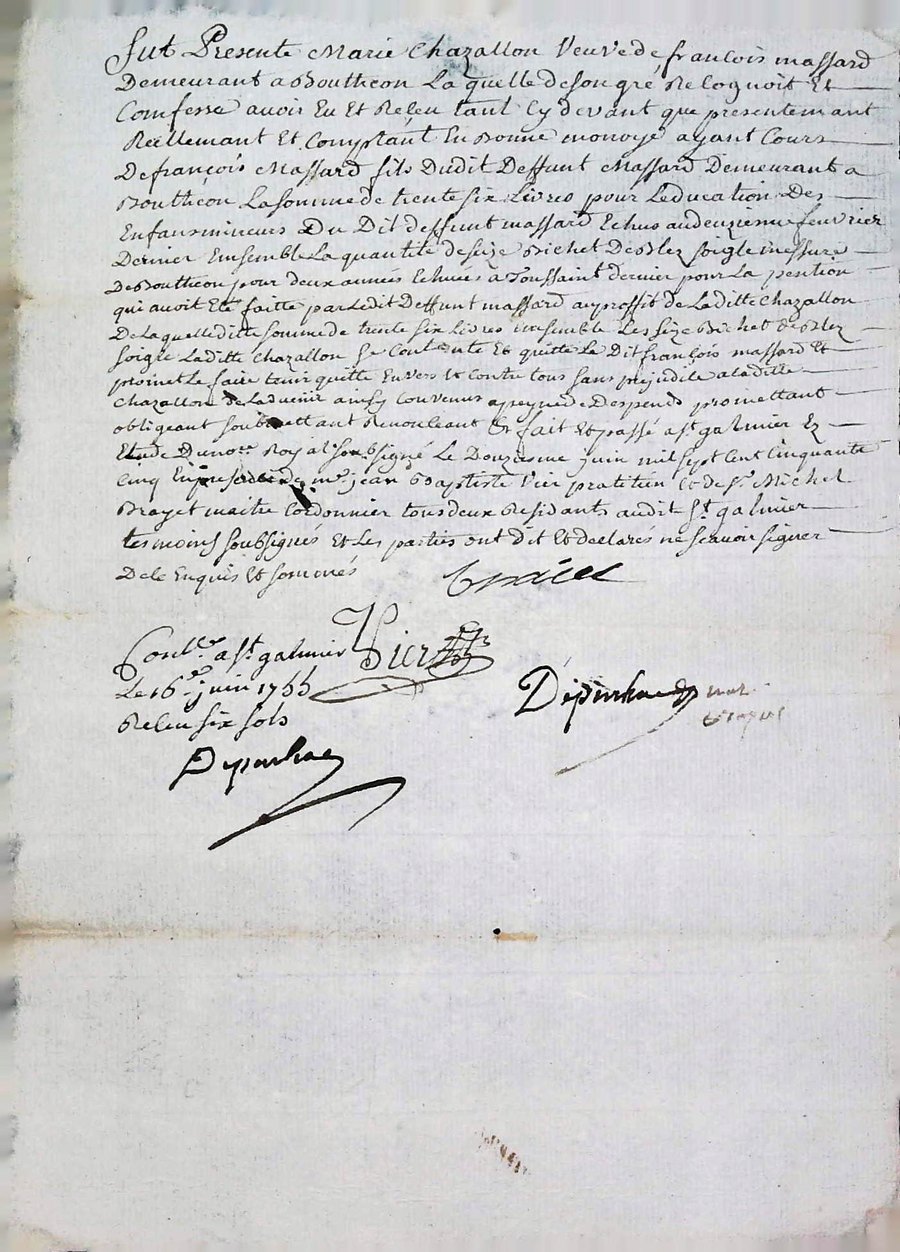 fut Presente Marie Chazallon Veuve de françois massard
Demeurant a Boutheon La quelle de son gré, Recognoit Et
Comfesse avoir Eu Et Receu tant Cy devant que presentemant
Réellemant Et Comptant En Bonne monoye ayant Cours
De françois Massard fils Dudit Deffunt Massard Demeurant a
Boutheon La somme de trente six Livres pour Leducation Des
Enfans mineurs Du Dit deffunt massard Echus au deuzieme feuvrier
Dernier Ensemble La quantité de seize Bichet De Blez soigle messure
De Boutheon pour deux années Echuées a Toussaint dernier pour La pention
qui avoit Eté faitte par Ledit Deffunt massard au proffit de Laditte Chazallon
De Laquelle ditte somme de trente six Livres Ensemble Les seize Bichet de Blez
soigle Laditte Chazallon se Contente Et quitte Le Dit françois massard Et
promet Le faire tenir quitte Envers Et contre tous sans prejudice a laditte
Chazallon de Ladvenir ainsy Convenus a peyne de Despends promettant
obligeant soubmettant Renonceant Et fait Et passé a St. galmier Ez
Etude Du nore. Royal soubsigné Le Douzieme juin mil sept Cent Cinquante
cinq En presence de mr. jean Baptiste Vier pratitien Et de sr. Michel
Brayet maitre Cordonnier tous deux Residants audit St. galmier
tesmoins soubsignés Et Les parties ont dit Et declarés ne scavoir signer
De ce Enquis Et somonés
Contllé. a St. galmier Vier
Le 16e. juin 1755
Receu six sols